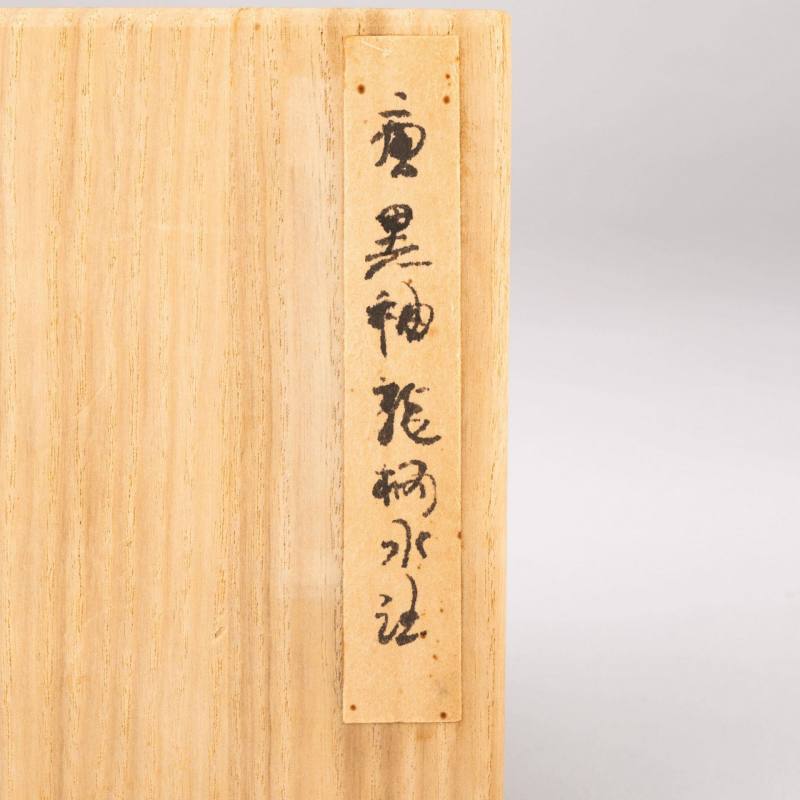 唐黒釉龍柄水注